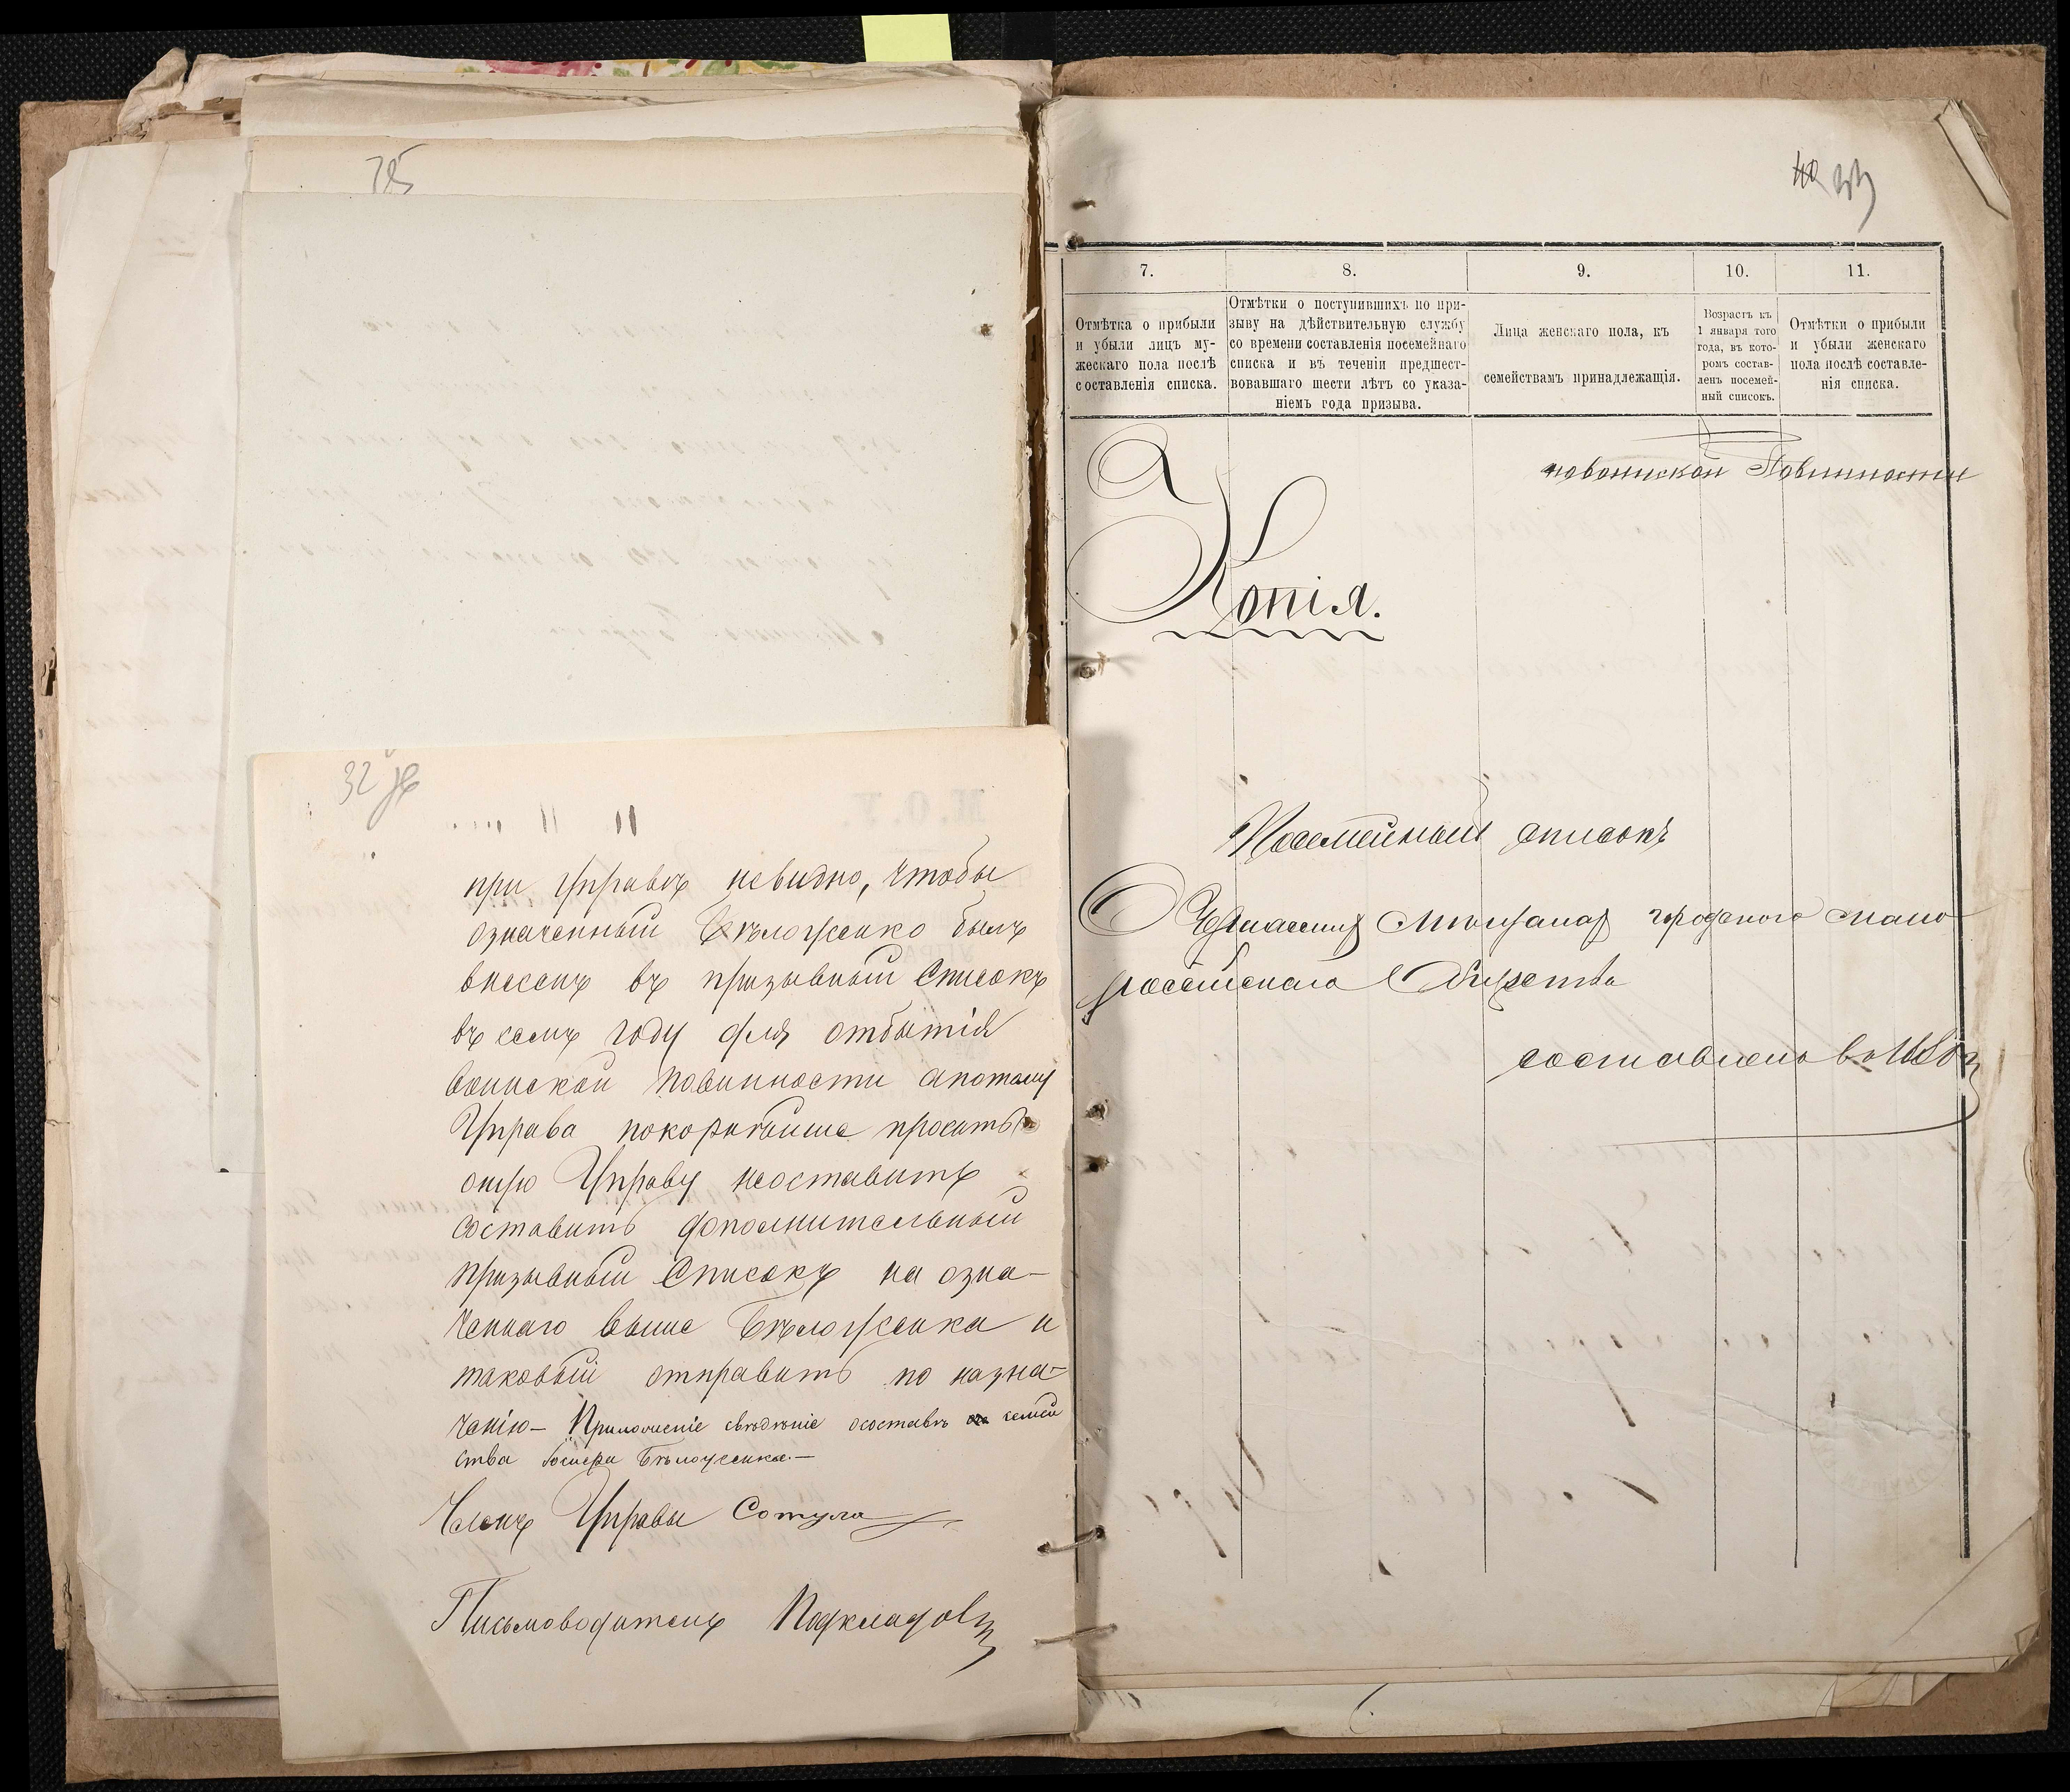 32
при Управѣ невидно, чтобы
означенный Бѣлоусенко былъ
внесенъ въ призывный Списокъ
въ семъ году для отбытія
воинской повинности апотому
Управа покорнѣйше проситъ
оную Управу неоставить
составить дополнительный
призывный Списокъ на озна-
ченнаго выше Бѣлоусенка и
таковый отправить по назна-
ченію— Приложеніе свѣдѣніе осоставѣ семей
ства Бѣлоусенка.—
Членъ Управы Сотула
Письмоводитель Подкладовъ
7. 8. 9. 10. 11.
Отмѣтка о прибыли
и убыли лицъ му-
жескаго пола послѣ
составленія списка.
Отмѣтки о поступившихъ по при-
зыву на дѣйствительную службу
со времени составленія посемейнаго
списка и въ теченіи предшест-
вовавшаго шести лѣтъ со указа-
ніемъ года призыва.
Лица женскаго пола, къ
семействамъ принадлежащія.
Возрастъ къ
1 января того
года, въ кото-
ромъ состав-
ленъ посемей-
ный списокъ.
Отмѣтки о прибыли
и убыли женскаго
пола послѣ составле-
нія списка.
повоинской Повинности
Копія.
Посемейный списокъ
городского мало
россійскаго Общества
составленъ